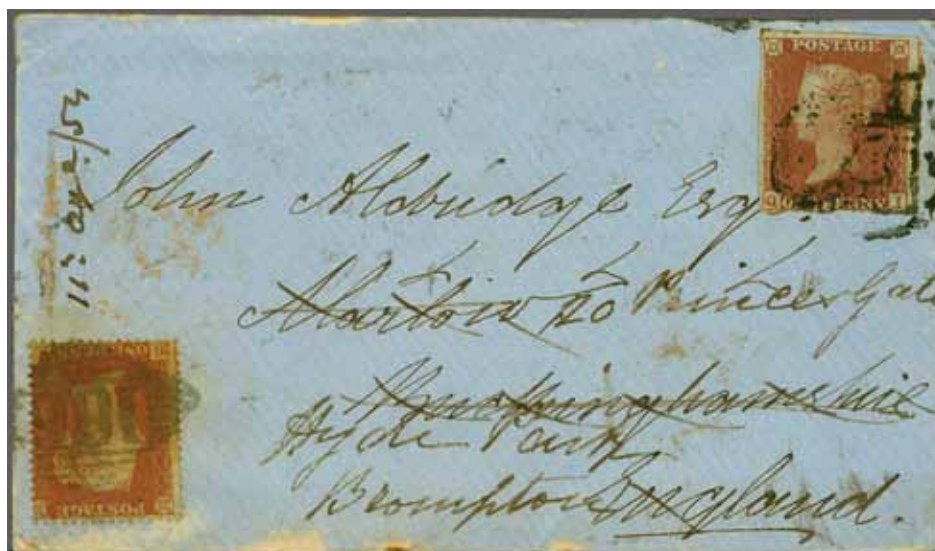 POSTAGE
ONE PENNY
John Aldridge Esq
Marlow 20 Princes Gate
Buckinghamshire
Hyde Park
Brompton England.
POSTAGE